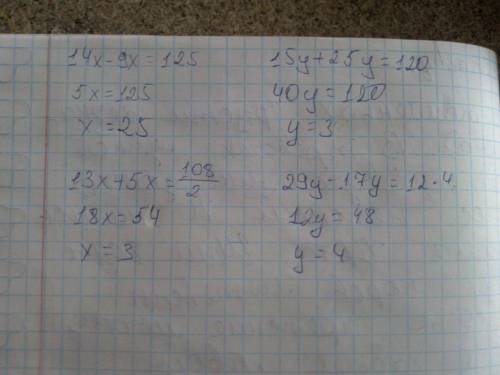 14x-9x=125
5x=125
x=25
15y+25y=120
40y=120
y=3
13x+5x=108/2
18x=54
x=3
29y-17y=12·4
12y=48
y=4